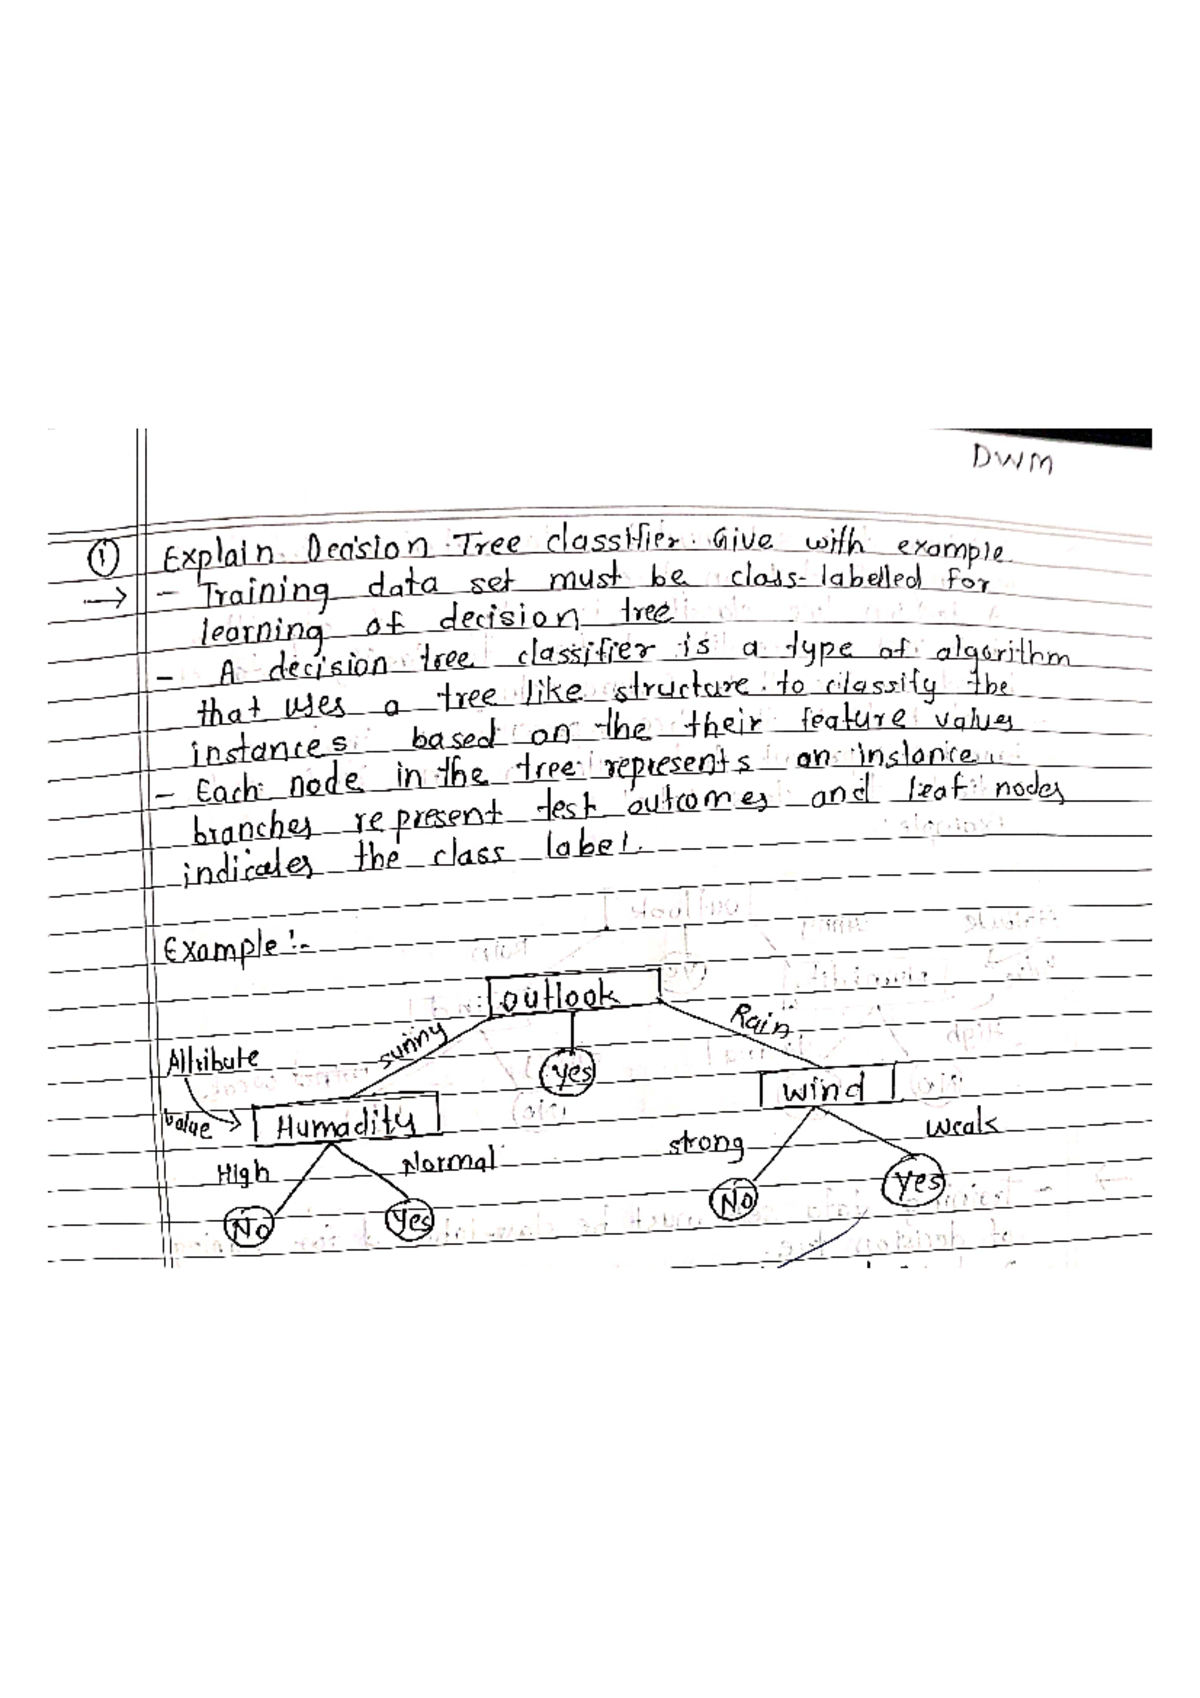 DWM
① Explain Decision Tree classifier. Give with example.
→ - Training data set must be class-labelled for
learning of decision tree
- A decision tree classifier is a type of algorithm
that uses a tree like structure to classify the
instances based on the their feature values
- Each node in the tree represents an instance
branches represent test outcomes and leaf nodes
indicates the class label.
Example :-
outlook
sunny Rain
Attribute Yes Wind
value → Humadity
strong Weak
High Normal
No Yes No Yes